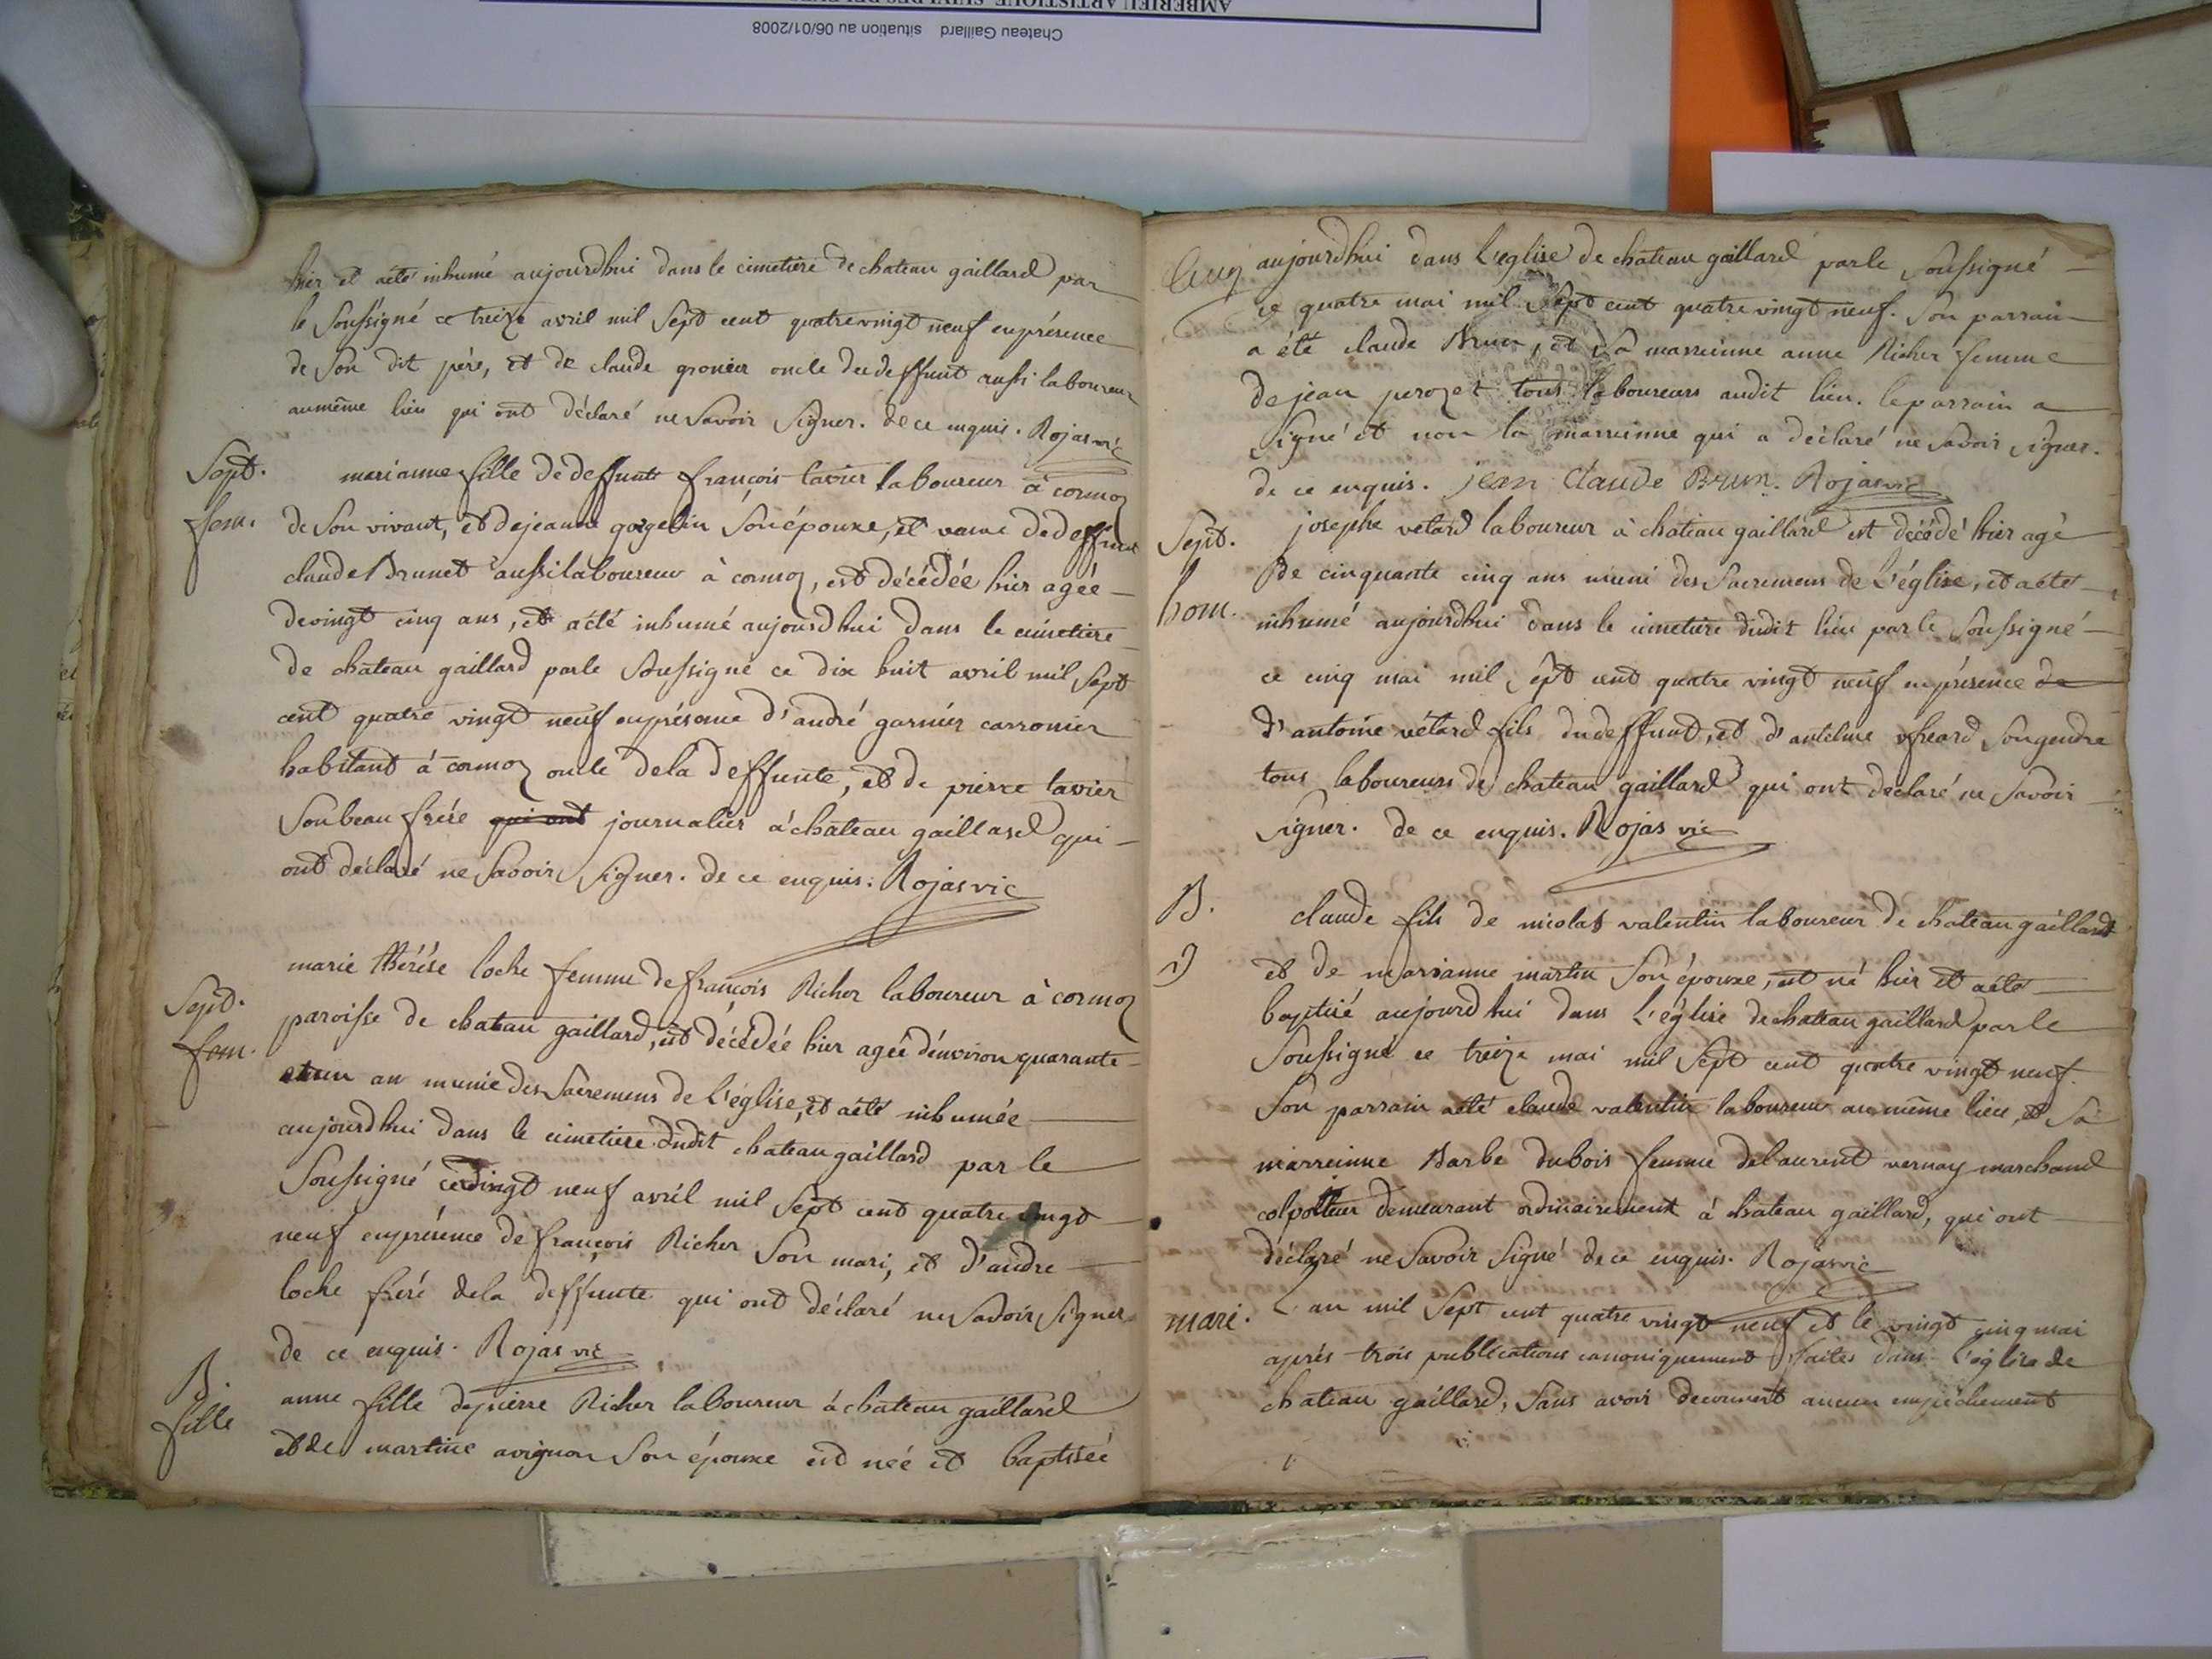 AMBERIEU ARTISTIQUE SUIVI DES
Chateau Gaillard situation au 06/01/2008
hier et aété inhumé aujourdhui dans le cimetière de chateau gaillard par
le Soussigné ce treize avril mil Sept cent quatre vingt neuf en présence
de Son dit père, et de claude gronier oncle du deffunt aussi laboureur
au même lieu qui ont déclaré ne Savoir Signer. de ce enquis. Rojas vic
Sept.
fem.
marianne fille de deffunt françois tavier laboureur à cormoz
de Son vivant, et de jeanne gozgelin Son épouse, et veuve de deffunt
claude Brunet aussi laboureur à cormoz, est décédée hier agée
de vingt cinq ans, et aété inhumé aujourdhui dans le cimetière
de chateau gaillard par le Soussigné ce dix huit avril mil Sept
cent quatre vingt neuf en présence d'andré garnier carronier
habitant à cormoz oncle de la deffunte, et de pierre tavier
Son beau frère qui ont journalier à chateau gaillard qui
ont déclaré ne Savoir Signer. de ce enquis. Rojas vic
Sept.
fem.
marie thérèse loche femme de françois Richer laboureur à cormoz
paroisse de chateau gaillard, est décédée hier agée d'environ quarante
et un an munie des Sacremens de l'église, et aété inhumée
aujourdhui dans le cimetière dudit chateau gaillard par le
Soussigné ce vingt neuf avril mil Sept cent quatre vingt
neuf en présence de françois Richer Son mari, et d'andre
loche frère de la deffunte qui ont déclaré ne Savoir Signer
de ce enquis. Rojas vic
B.
fille
anne fille de pierre Richer laboureur à chateau gaillard
et de martine avignon Son épouse est née et baptisée
aujourdhui dans l'église de chateau gaillard par le Soussigné
ce quatre mai mil Sept cent quatre vingt neuf. Son parrain
a été claude Brun, et Sa marreinne anne Richer femme
de jean perozet tous laboureurs audit lieu. le parrain a
Signé et non la marreinne qui a déclaré ne Savoir Signer.
de ce enquis. jean claude Brun. Rojas vic
Sept.
hom.
josephe vetard laboureur à chateau gaillard est décédé hier agé
de cinquante cinq ans muni des Sacremens de l'église, et aété
inhumé aujourdhui dans le cimetière dudit lieu par le Soussigné
ce cinq mai mil Sept cent quatre vingt neuf en présence de
d'antoine vétard fils du deffunt, et d'antelme Son gendre
tous laboureurs de chateau gaillard qui ont declaré ne Savoir
Signer. de ce enquis. Rojas vic
B.
claude fils de nicolas valentin laboureur de chateau gaillard
et de marianne martin Son épouse, est né hier et aété
baptisé aujourdhui dans l'église de chateau gaillard par le
Soussigné ce treize mai mil Sept cent quatre vingt neuf.
Son parrain aété claude valentin laboureur au même lieu, et Sa
marreinne Barbe dubois femme de laurent vernay marchand
colporteur demeurant ordinairement à chateau gaillard, qui ont
déclaré ne Savoir Signé de ce enquis. Rojas vic
mari.
L'an mil Sept cent quatre vingt neuf et le vingt cinq mai
après trois publications canoniquement faites dans l'église de
chateau gaillard, Sans avoir decouvert aucun empéchement